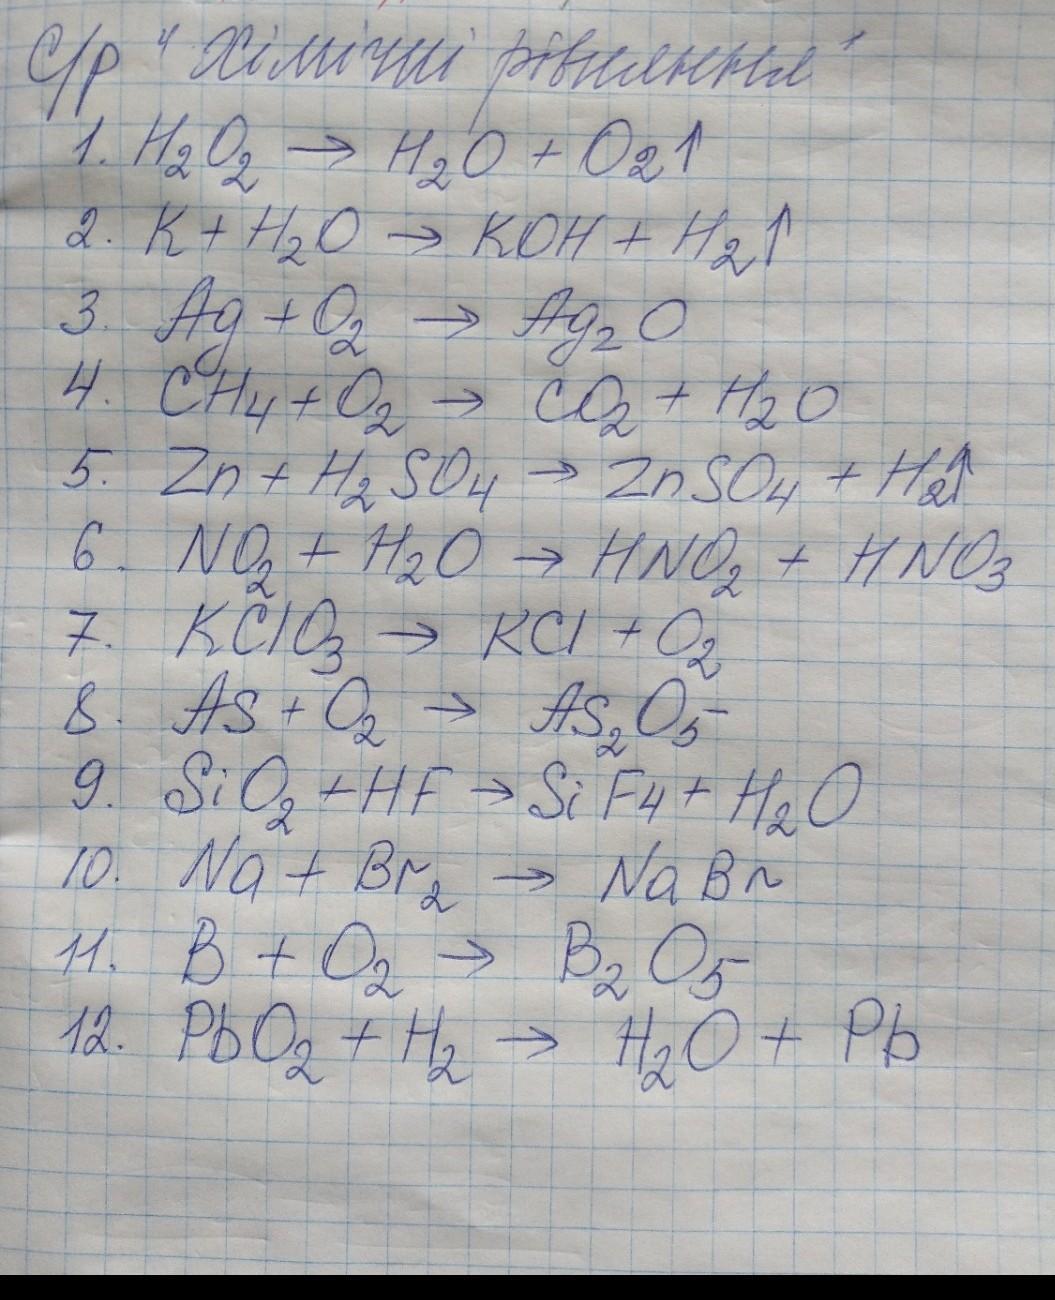 С/р "Хімічні рівняння"
1. H₂O₂ → H₂O + O₂↑
2. K + H₂O → KOH + H₂↑
3. Ag + O₂ → Ag₂O
4. CH₄ + O₂ → CO₂ + H₂O
5. Zn + H₂SO₄ → ZnSO₄ + H₂↑
6. NO₂ + H₂O → HNO₂ + HNO₃
7. KClO₃ → KCl + O₂
8. As + O₂ → As₂O₅
9. SiO₂ + HF → SiF₄ + H₂O
10. Na + Br₂ → NaBr
11. B + O₂ → B₂O₅
12. PbO₂ + H₂ → H₂O + Pb